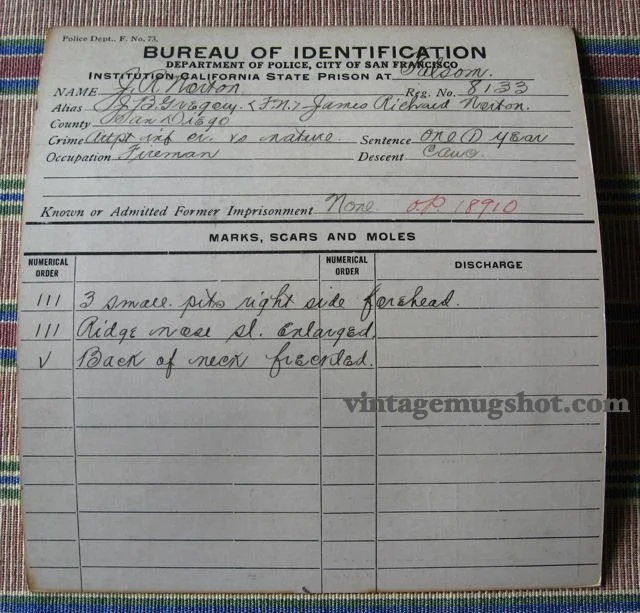 Police Dept., F. No. 73.
BUREAU OF IDENTIFICATION
DEPARTMENT OF POLICE, CITY OF SAN FRANCISCO
INSTITUTION CALIFORNIA STATE PRISON AT Folsom.
NAME J. R. Norton Reg. No. 8133
Alias J. B. Gregory. & T.N. - James Richard Norton.
County San Diego
Crime Attpt inf cr. vs nature. Sentence one (1) year
Occupation Fireman Descent Cauc.
Known or Admitted Former Imprisonment None O.P. 18910
MARKS, SCARS AND MOLES
NUMERICAL ORDER NUMERICAL ORDER DISCHARGE
III 3 small pits right side forehead.
III Ridge nose sl. Enlarged.
V Back of neck freckled.
vintagemugshot.com